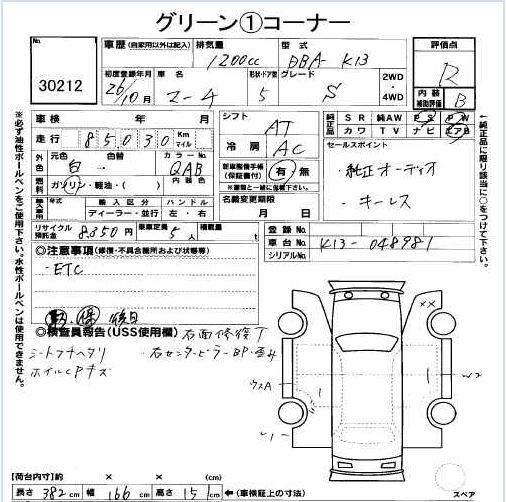 グリーン①コーナー
30212
車歴 (自家用以外は記入) 排気量 1200cc 型式 DBA-K13
評価点 R
初度登録年月 26/10月 車名 マーチ 形状・ドア数 5 グレード S 2WD ・ 4WD
内装補助評価 B
車検 年 月
走行 85030 Km マイル
シフト AT
純正品 SR 純AW PS PW
カワ TV ナビ エアB
冷房 AC
外色 元色 白 色替 カラーNo QAB
燃料 ガソリン・軽油・( ) 内装色
新車整備手帳 (保証書付) 有・無
※書類と一緒に後勝下さい。
セールスポイント
・純正オーディオ
・キーレス
輸入車用 輸入区分 ハンドル
ディーラー・並行 左・右
名義変更期限 月 日
リサイクル預託金 8,350円 乗車定員 5人 積載量
登録No.
車台No. K13-048981
シリアルNo.
◎注意事項(修復・不具合箇所および状態等)
・ETC
後日
◎検査員報告(USS使用欄) 右面修復了
シートコゲヘタリ 右センターピラーBP・歪み
ホイルCPキズ
××
ウスA
W2
【荷台内寸】約 × ×
長さ 382cm 幅 166cm 高さ 151cm ←(車検証上の寸法) スペア
※必ず油性ボールペンをご使用下さい。水性ボールペンは使用できません。
←純正品に限り該当に○をつけて下さい。